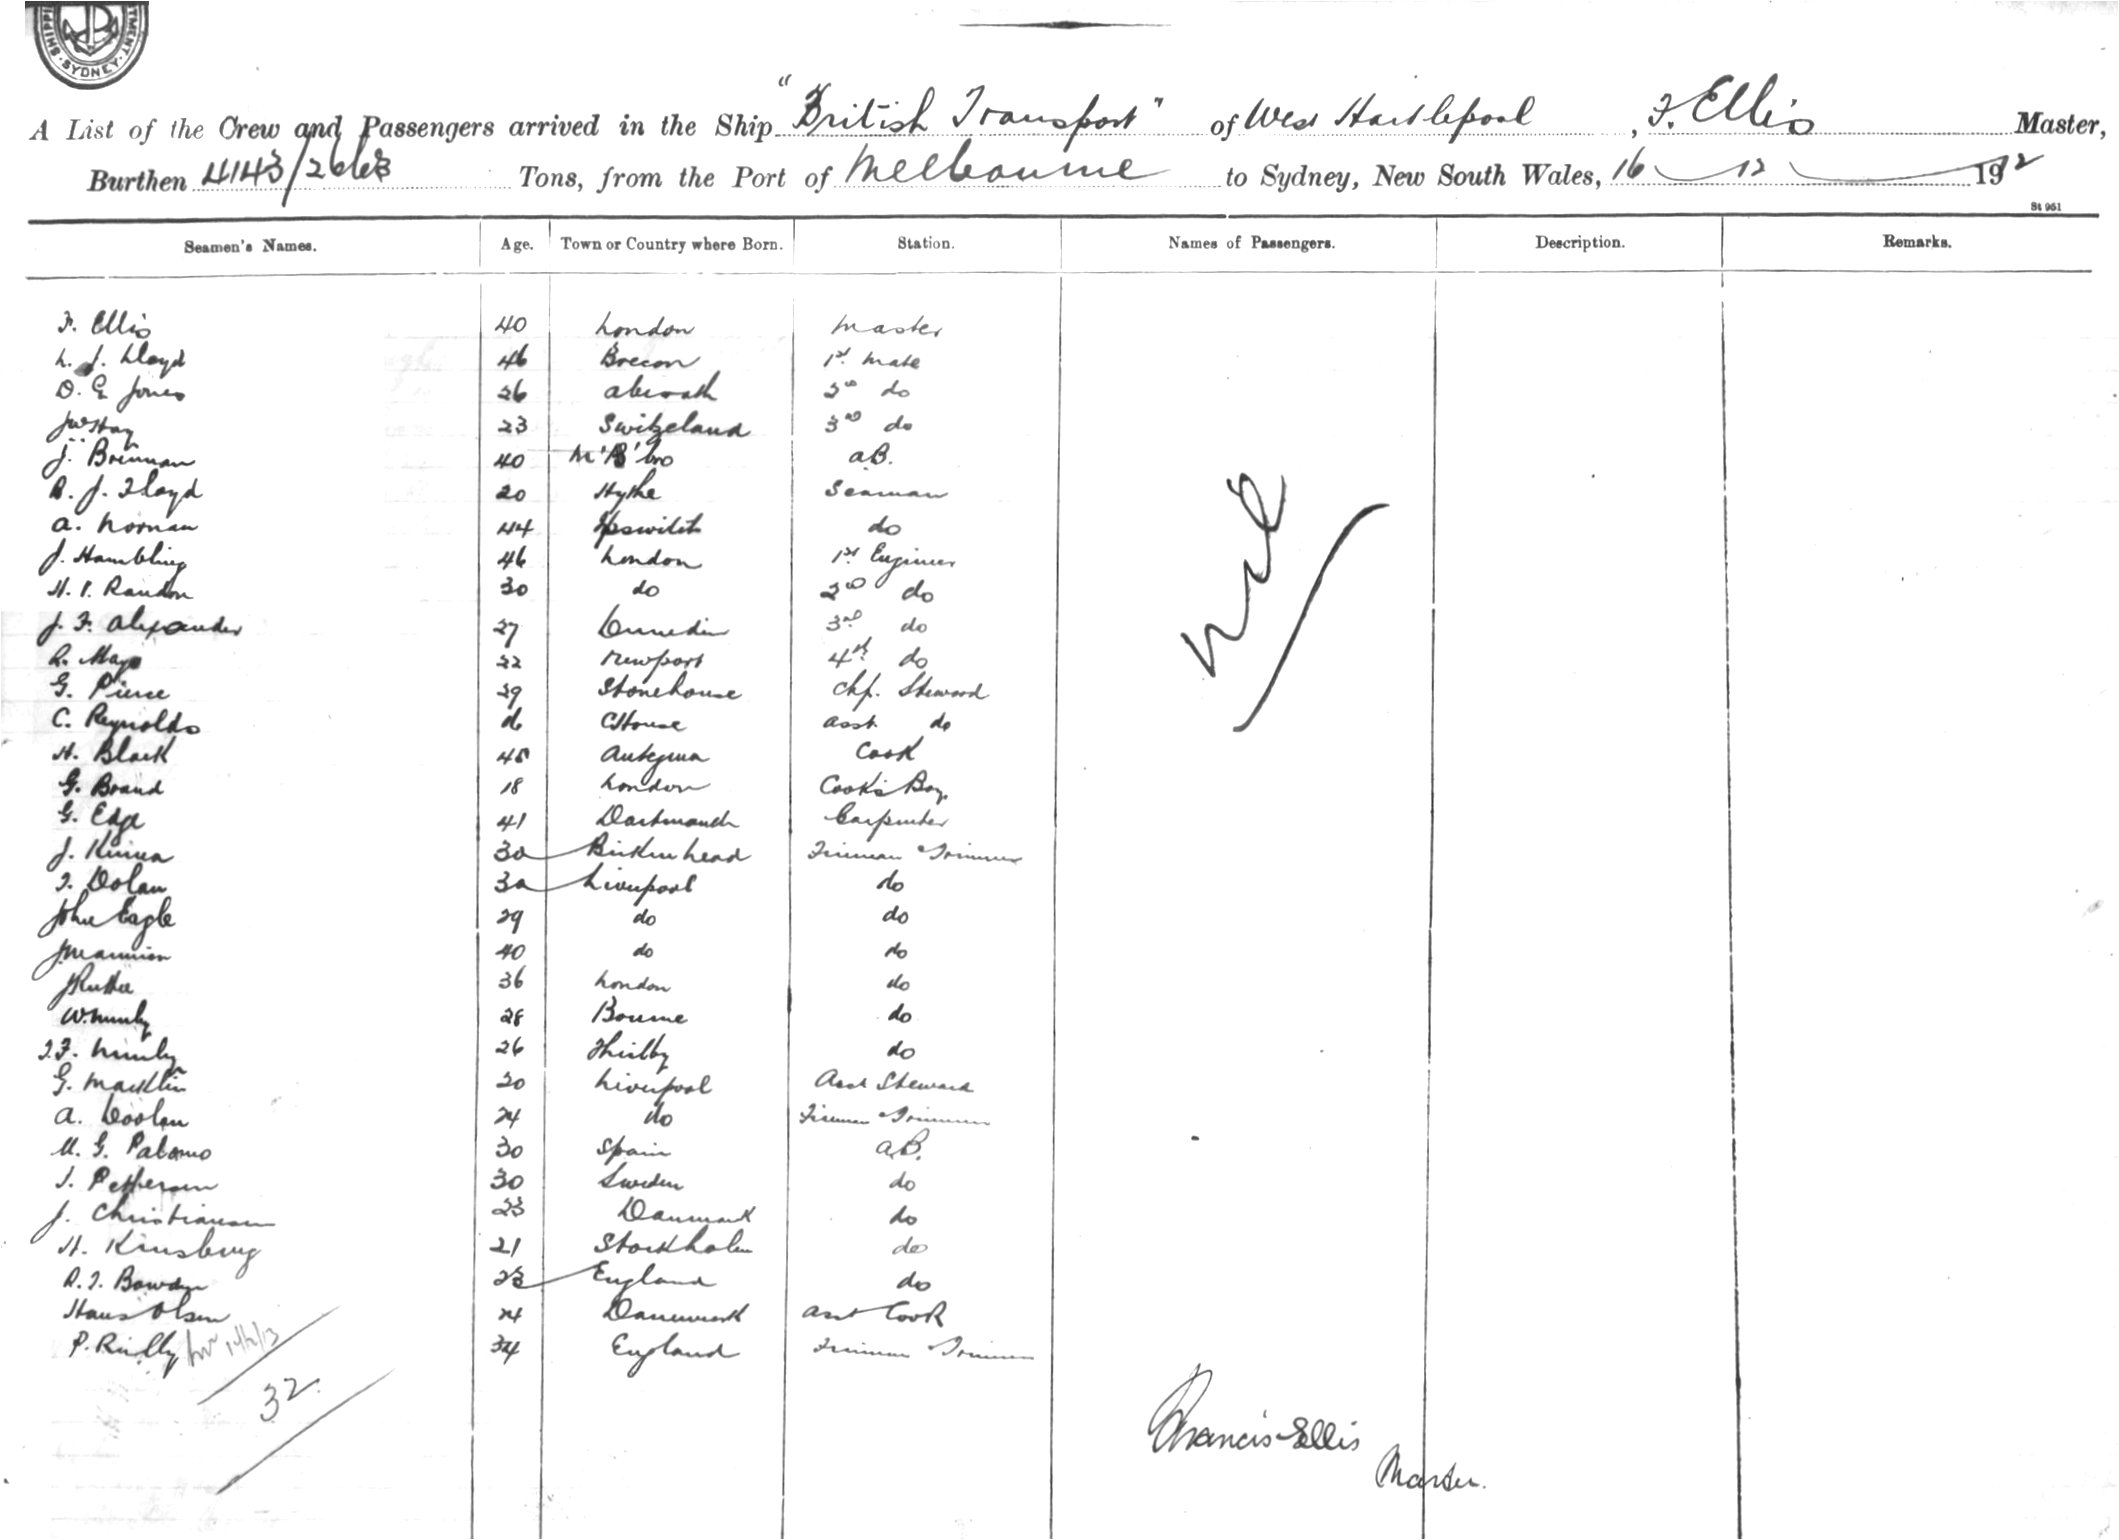 SHIPPI TMENT. SYDNEY.
A List of the Crew and Passengers arrived in the Ship "British Transport" of West Hartlepool, F. Ellis Master,
Burthen 4143/2663 Tons, from the Port of Melbourne to Sydney, New South Wales, 16 12 1912
St 951
Seamen's Names. Age. Town or Country where Born. Station. Names of Passengers. Description. Remarks.
F. Ellis 40 London Master
L. J. Lloyd 46 Brecon 1st. Mate
D. E Jones 26 2nd do
J W Hay 23 Switzeland 3rd do
J. Brennan 40 M'B'bro a.B.
R. J. Floyd 20 Hythe Seaman
A. Norman 44 Ipswitch do
J. Hambling 46 London 1st. Engineer
H. I. Randon 30 do 2nd do
J. F. Alexander 27 Dunedin 3rd do
R. Mayo 22 Newport 4th do
G. Pierce 29 Stonehouse Chf. Steward
C. Reynolds Asst do
H. Black 45 Antegua Cook
G. Brand 18 London Cook's Boy
G. Edge 41 Dartmouth Carpenter
J. Kinna 30 Birkenhead Fireman Trimmer
T. Dolan 30 Liverpool do
John Eagle 29 do do
J Mannion 40 do do
36 London do
W. Nunly 28 Bourne do
J. F. Nunly 26 do
G. Macklin 20 Liverpool Asst Steward
A. Doolan 24 do Fireman Trimmer
M. G. Palomo 30 Spain a.B.
J. Pettersen 30 Sweden do
J. Christiansen 23 Danmark do
H. Kinsberg 21 Stockholm do
R. J. Bowden 23 England do
Hans Olsen 24 Danemark Asst Cook
P. Reilly 34 England Fireman Trimmer
Nil
32
Francis Ellis
Master.